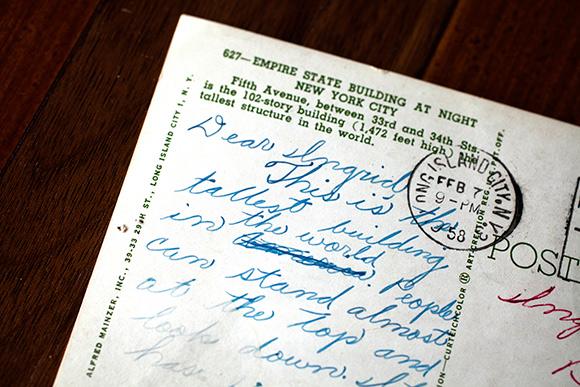 627—EMPIRE STATE BUILDING AT NIGHT
NEW YORK CITY
Fifth Avenue, between 33rd and 34th Sts.
is the 102-story building (1,472 feet high) the
tallest structure in the world.
Dear Ingrid
This is the
tallest building
in the world
People
can stand almost
at the top and
look down.
has
ALFRED MAINZER, INC., 39-33 29TH ST., LONG ISLAND CITY 1, N. Y.
LONG ISLAND CITY, N.Y.
FEB 7
9-PM
1958
POST
CURTEICHCOLOR ® ART-CREATION REG. U.S. PAT. OFF.